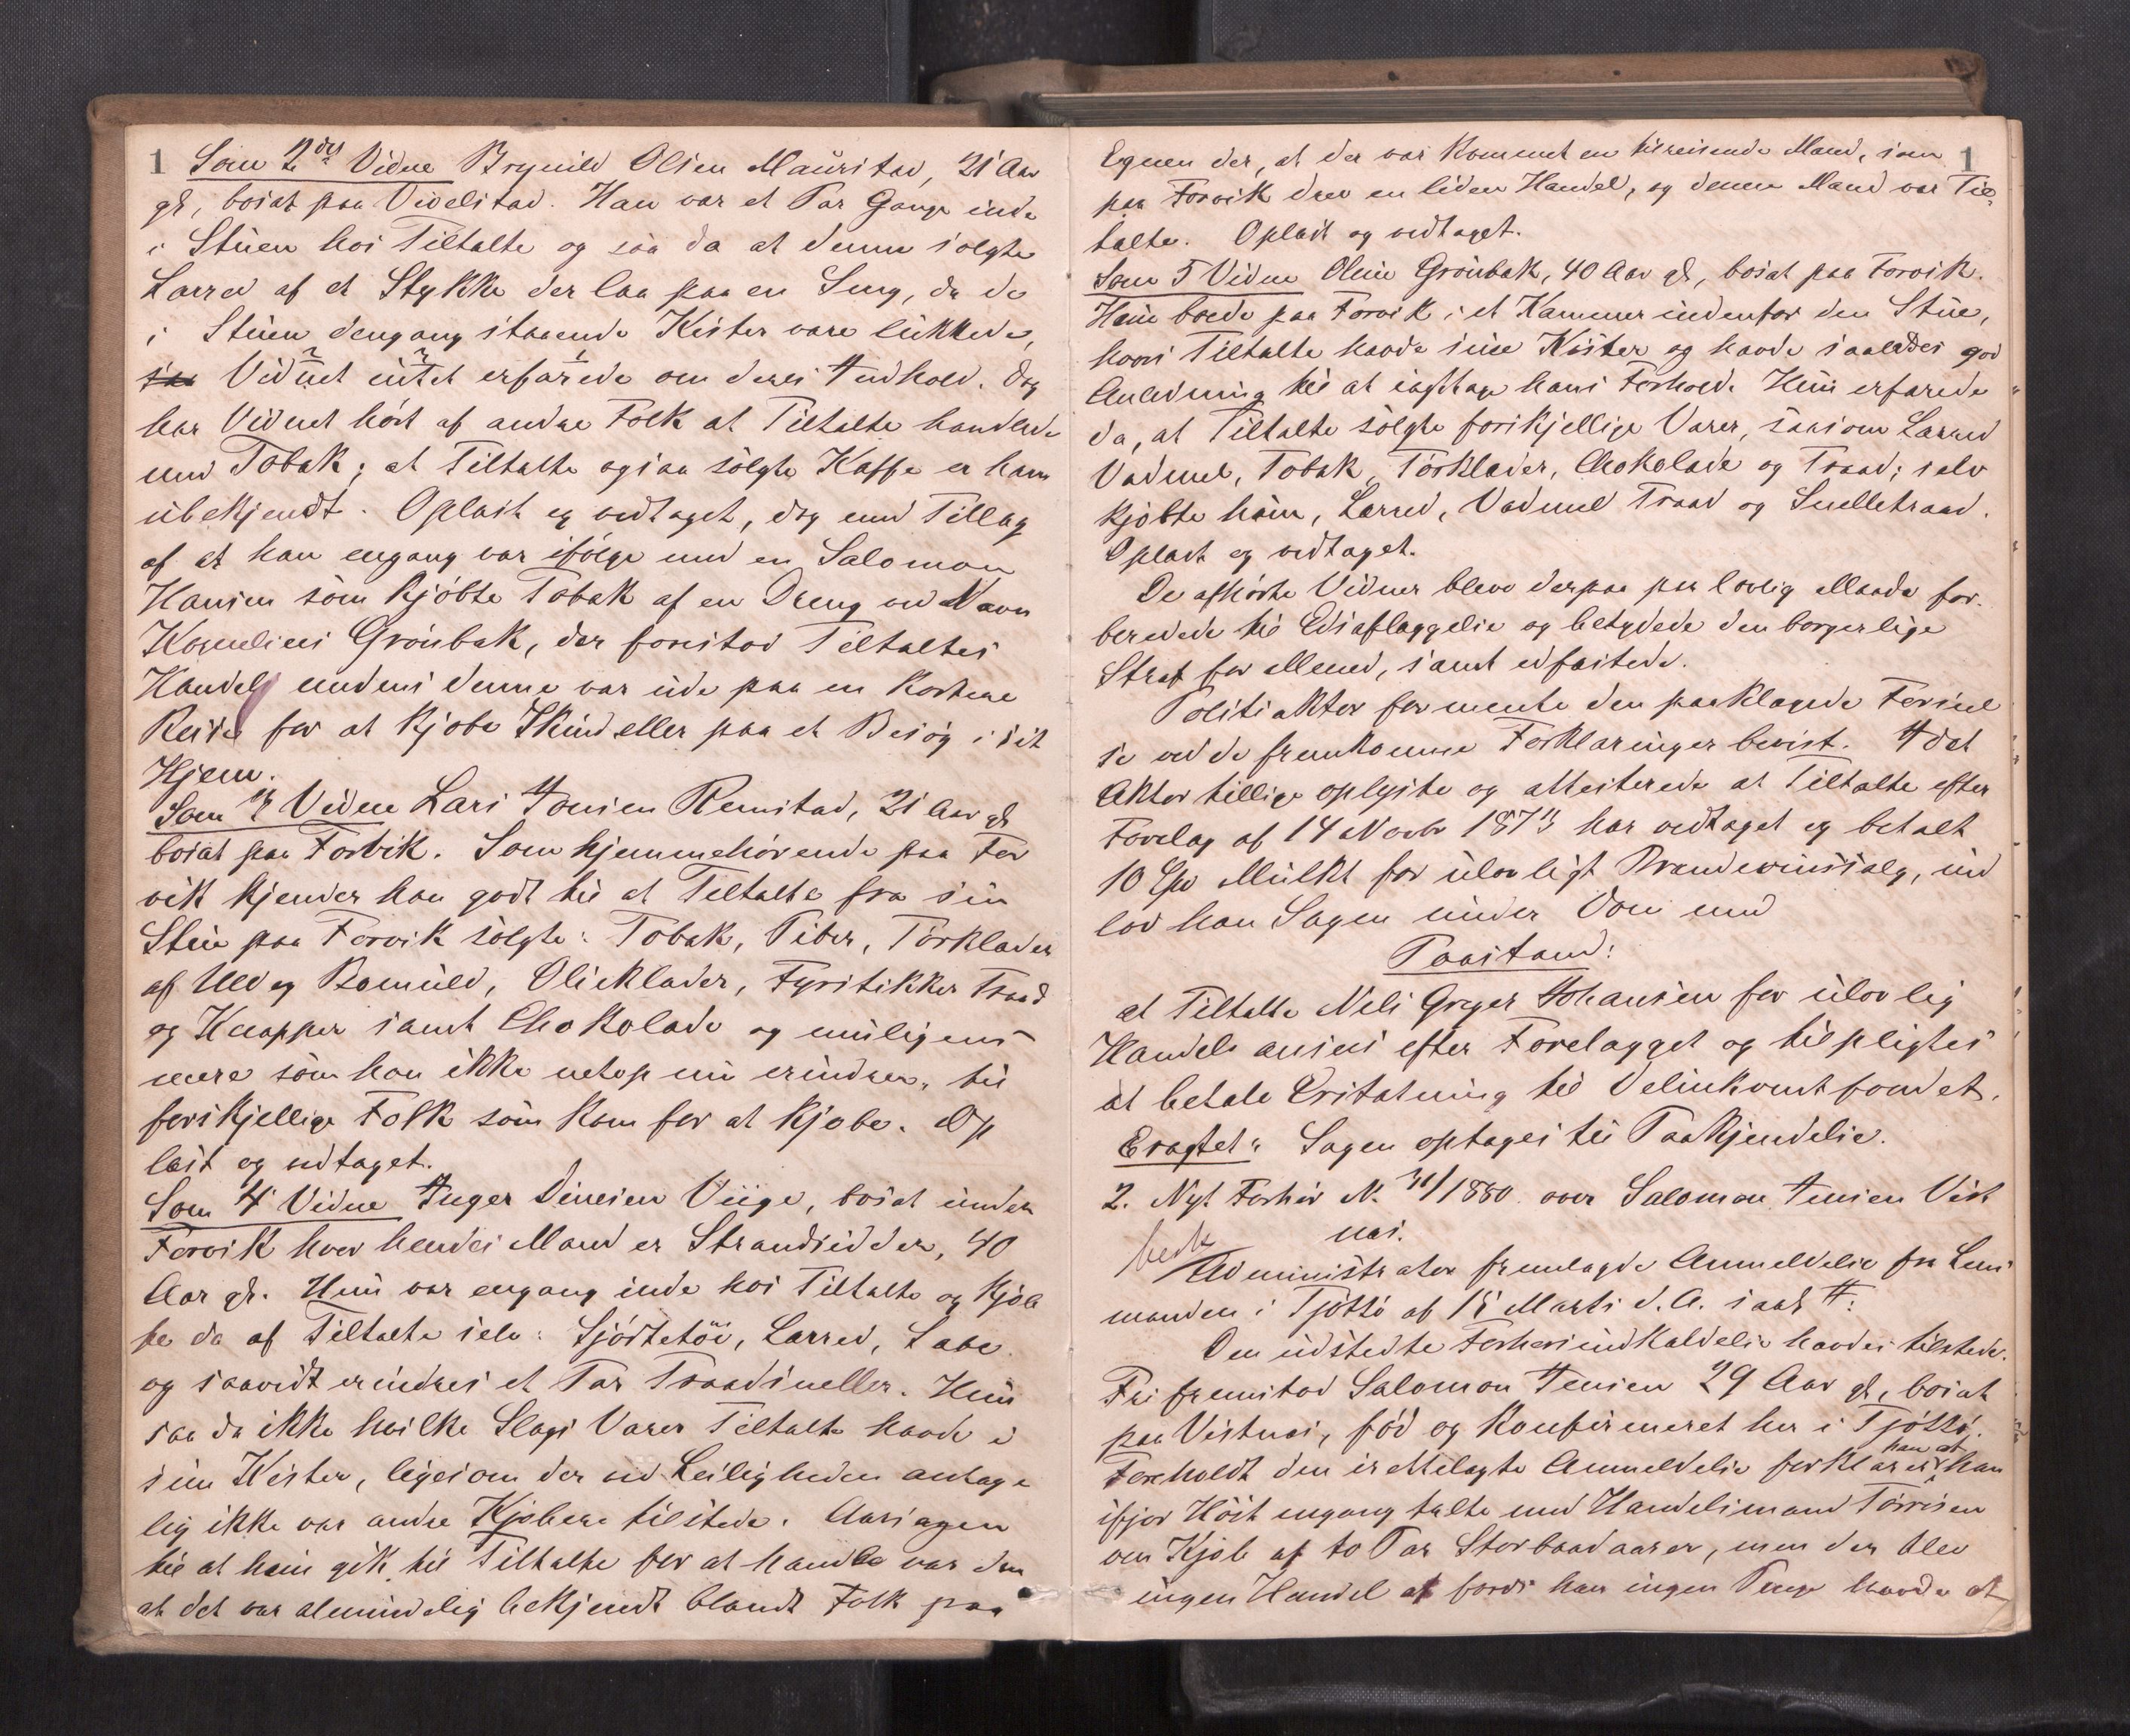 1
Som 2det Vidne Brynild Olsen Mausstad, 21 Aar
gl, bosat paa Videlstad. Han var et Par Gange inde
i Stuen hos Tiltalte og saa da at denne solgte
Lærred af et Stykke der laa paa en Seng, da de
i Stuen dengang staaende Kister vare lukkede,
Vidnet intet erfarede om deres Indhold. Dog
har Vidnet hört af andre Folk at Tiltalte handlede
med Tobak; at Tiltalte ogsaa sölgte Kaffe er ham
ubekjendt. Oplæst og vedtaget, dog med Tillæg
af at han engang var ifölge med en Salomon
Hansen som kjöbte Tobak af en Dreng ved Navn
Kornelius Grönbæk, der forestod Tiltaltes
Handel medens denne var ude paa en kortere
Reise for at kjöbe Skind eller paa et Besög i sit
Hjem.
Som Vidne Lars Jonsen Remstad, 21 Aar gl
bosat paa Forvik. Som hjemmehörende paa For
vik kjender han godt til at Tiltalte fra sin
Stue paa Forvik solgte: Tobak, Piber, Törklæder
af Uld og Bomuld, Olieklæder, Fyrstikker Traad
og Knapper samt Chokolade og muligens
mere som han ikke netop nu erindrer, til
forskjellige Folk som kom for at kjöbe. Op
læst og vedtaget.
Som 4 Vidne Inger Dinesen Viige, bosat under
Forvik hvor hendes Mand er Strandsidder, 40
Aar gl. Hun var engang inde hos Tiltalte og kjöb
te da af Tiltalte selv: Skjörtetöi, Lærred,
og saavidt erindres et Par Traadsneller. Hun
saa da ikke hvilke Slags Varer Tiltalte havde i
sine Kister, ligesom der ved Leiligheden antage
lig ikke var andre Kjöbere tilstede. Aarsagen
til at hun gik til Tiltalte for at handle var den
at det var almindelig bekjendt blandt Folk paa
1
Egnen der, at der var kommet en tilreisende Mand, som
paa Forvik drev en liden Handel, og denne Mand var Til-
talte. Oplæst og vedtaget.
Som 5 Vidne Oline Grönbæk, 40 Aar gl, bosat paa Forvik.
Hun boede paa Forvik i et Kammer indenfor den Stue,
hvori Tiltalte havde sine Kister og havde saaledes god
Anledning til at iagttage hans Forhold. Hun erfarede
da, at Tiltalte solgte forskjellige Varer, saasom Lærred
Vadmel, Tobak, Törklæder, Chokolade og Traad; selv
kjöbte hun, Lærred, Vadmel Traad og Snelletraad.
Oplæst og vedtaget.
De afhörte Vidner bleve derpaa paa lovlig Maade for-
beredede til Edsaflæggelse og betydede den borgerlige
Straf for Mened, samt edfæstede.
Politiaktor formente den paaklagede Forseel
se ved de fremkomne Forklaringer bevist. Idet
Aktor tillige oplyste og attesterede at Tiltalte efter
Forelæg af 14 Novbr har vedtaget og betalt
10 Spd Mulkt for ulovligt Brændevinssalg, ind
lod han Sagen under Dom med
Paastand:
at Tiltalte Nils Greger Johansen for ulovlig
Handel ansees efter Forelægget og tilpligtes
at betale Erstatning til Delinkventfondet.
Eragtet: Sagen optages til Paakjendelse.
2. Nyt Forhör N. /1880 over Salomon Jensen Vist
næs.
Administrator fremlagde Anmeldelse fra Lens
manden i Tjöttö af 15 Marts d. A. saal. #:
Den udstedte Forhörsindkaldelse havdes tilstede.
Fri fremstod Salomon Jensen 29 Aar gl, bosat
paa Vistnæs, föd og konfirmeret her i Tjöttö.
Foreholdt den irettelagte Anmeldelse forklarer han at han
ifjor Höst engang talte med Handelsmand Törrisen
om Kjöb af to Par Storbaadaarer, men der blev
ingen Handel af fordi han ingen Penge havde at